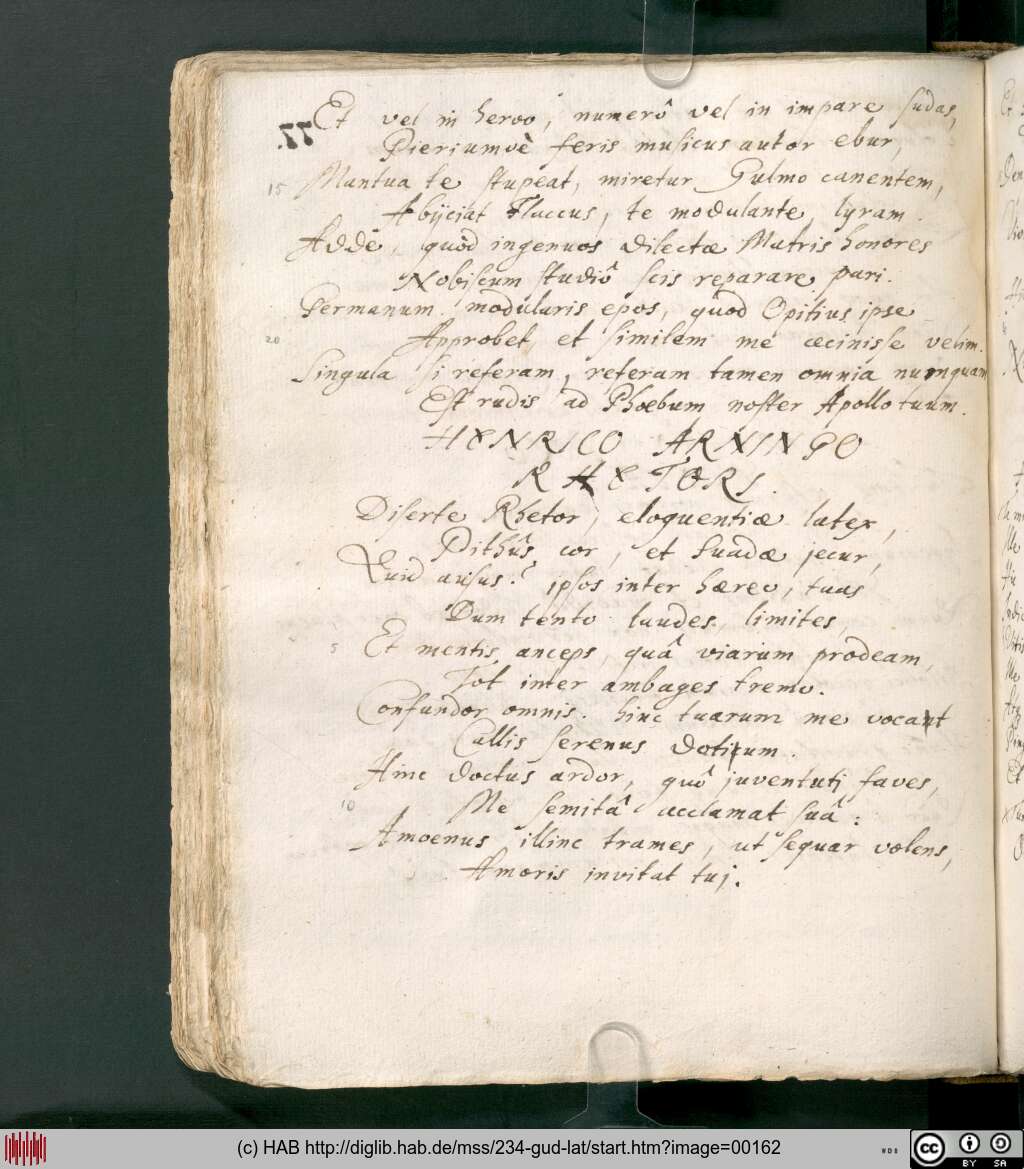 Et vel in heroo, numerô vel in impare sudas,
77.
Pieriumvè feris musicus autor ebur,
15 Mantua te stupeat, miretur Sulmo canentem,
Abijciat Flaccus, te modulante, lyram.
Adde, quòd ingenuos dilectæ Matris honores
Nobiscum studiô scis reparare pari.
Germanum modularis epos, quod Opitius ipse
20 Approbet, et similem me cecinisse velim.
Singula si referam, referam tamen omnia numquam
Est rudis ad Phoebum noster Apollo tuum.
HENRICO ARNINGO
RHETORI.
Diserte Rhetor, eloquentiæ latex,
Pithûs cor, et suadæ jecur,
Quid ausus? ipsos inter hæreo, tuas
Dum tento laudes, limites,
5 Et mentis anceps, quâ viarum prodeam,
Tot inter ambages tremo.
Confundor omnis. hinc tuarum me vocat
Callis serenus dotium.
Hinc doctus ardor, quô juventuti faves,
10 Me semitâ acclamat suâ:
Amoenus illinc trames, ut sequar volens,
Amoris invitat tuj.
(c) HAB http://diglib.hab.de/mss/234-gud-lat/start.htm?image=00162
WDB
cc BY SA